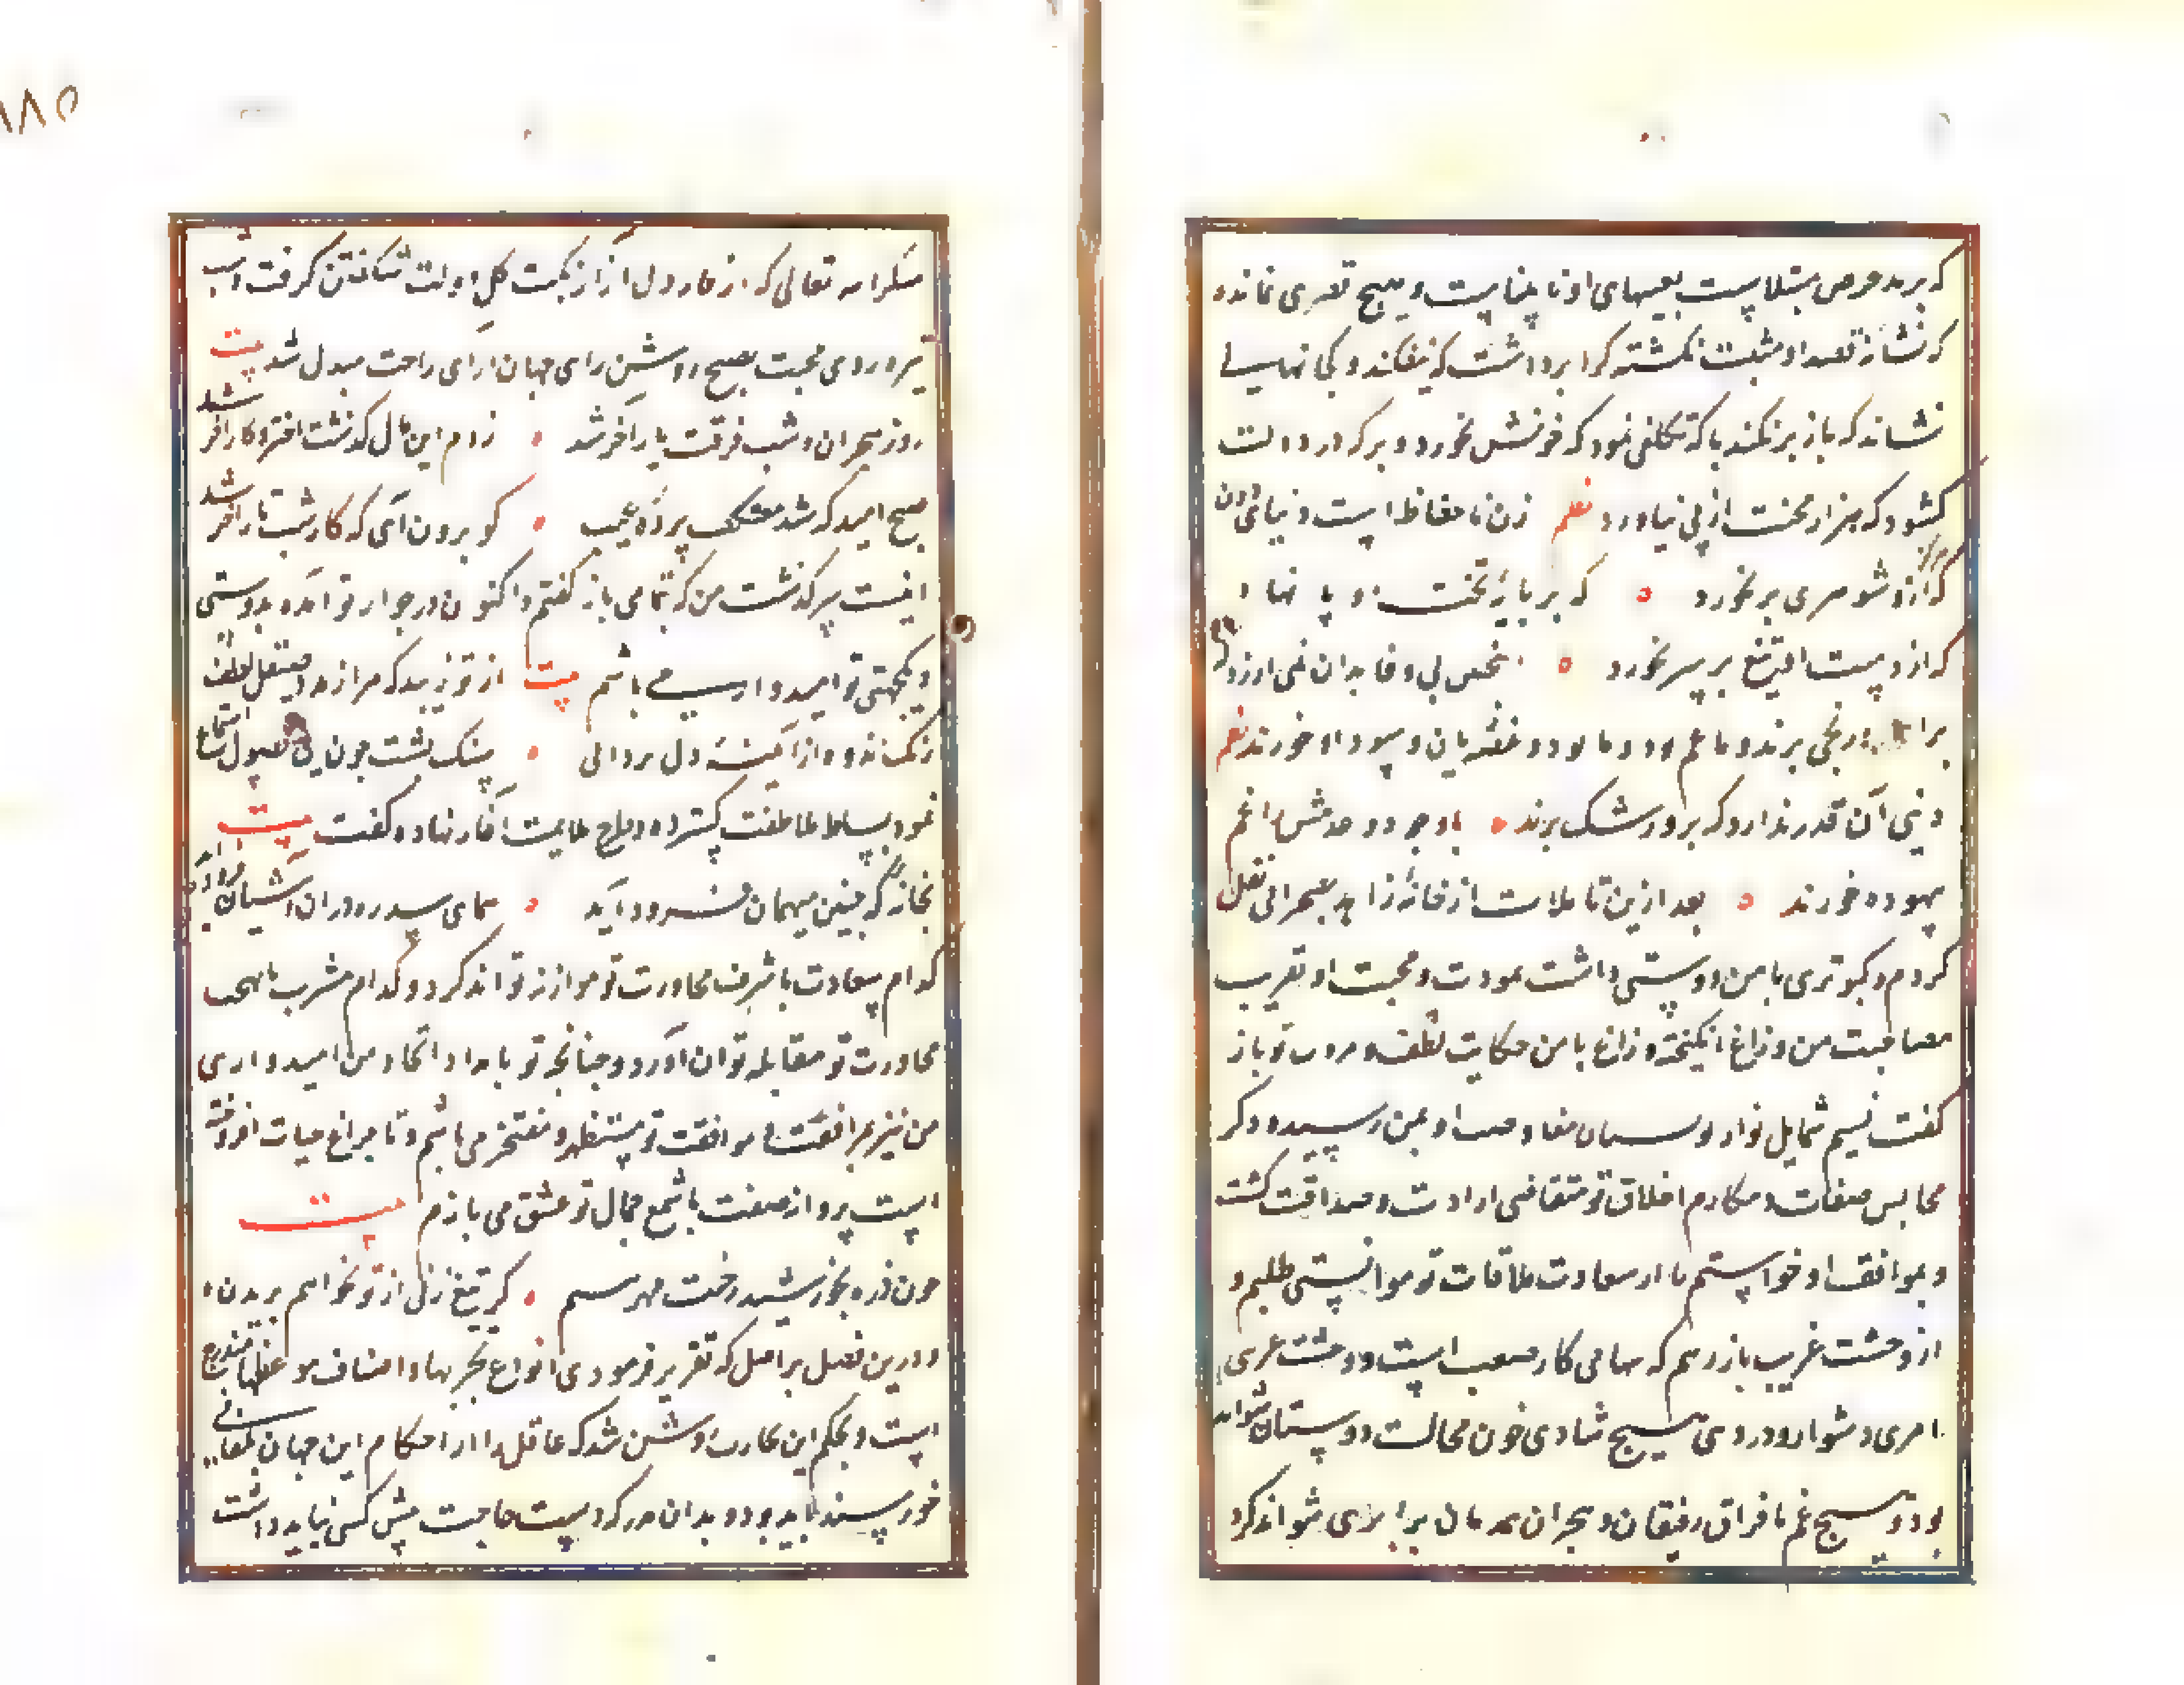 که نشانه تعداد مثبت نگشته کرا برداشت که نیفکند و کجا نهالی
نشاند که باز برنکند با که تکلفی نمود که خونش نخورد و بر که در دولت
کشود که هزار محنت از پی نیاورد نظم زن ناحفاظ است دنیای دون
که از شوهری بر نخورد که بر پایه تخت او پا نهاد
که از دست او تیغ بر سر نخورد شخص بی وفا بدان نمی ارزد که
برای رنجی برند و ما غم بود و نابود و غصه زیان و سود او خورند نظم
دنیی آن قدر ندارد که برو رشک برند با وجود و عدمش را غم
بیهوده خورند بعد ازین تاملات از خانه زاهد بصحرا نقل
کردم و کبوتری با من دوستی داشت مودت و محبت او تقریب
مصاحبت من و زاغ انگیخته و زاغ با من حکایت لطف و مروت تو باز
گفت نسیم شمایل تو از بوستان مفاوضت او بمن رسید و ذکر
محاسن صفات و مکارم اخلاق تو متقاضی ارادت و صداقت گشت
و بموافقت او خواستم تا از سعادت ملاقات تو موانستی طلبم و
از وحشت غربت باز رهم که تنهایی کار صعب است و وحشت غربت
امری دشوار و در دنیا هیچ شادی چون مجالست دوستان نتواند
بود و هیچ غم با فراق رفیقان و هجران همدمان برابری نتواند کرد
شکر الله تعالی که از خار دل آزار نکبت گل دولت شکفتن گرفت و شب
تیره روی محنت بصبح روشن رای جهان آرای راحت مبدل شد بیت
روز هجران و شب فرقت یار آخر شد زدم این فال گذشت اختر و کار آخر شد
صبح امید که شد معتکف پرده غیب گو برون آی که کار شب تار آخر شد
اینست سرگذشت من که بتمامی باز گفتم و اکنون در جوار تو آمده بدوستی
و یکجهتی تو امیدوار می باشم بیت از تو زیبد که مرا از مدد صیقل لطف
زنگ اندوه از آیینه دل بزدایی سنگ پشت چون این فصول استماع
نمود بساط ملاطفت گسترده و طرح ملایمت آغاز نهاد و گفت بیت
بخانه که چنین میهمان فرود آید همای سدره دران آشیان فرود آید
کدام سعادت با شرف مجاورت تو موازنه تواند کرد و کدام مشرب با بهجت
محاورت تو مقابله توان آورد و چنانچه تو بامداد اتحاد من امیدواری
من نیز بمرافقت و موافقت تو مستظهر و مفتخر می باشم و تا چراغ حیات افروخته
است پروانه صفت با شمع جمال تو عشق می بازم بیت
چون ذره بخورشید رخت مهر گر تیغ زنی از تو نخواهم بریدن
و درین فصل براصل که تقریر فرمودی انواع تجربها و اصناف موعظها مندرج
است و بحکم این تجارب روشن شد که عاقل را از احکام این جهان
خورسند باید بود و بدان قدر که دست حاجت پیش کسی نباید داشت